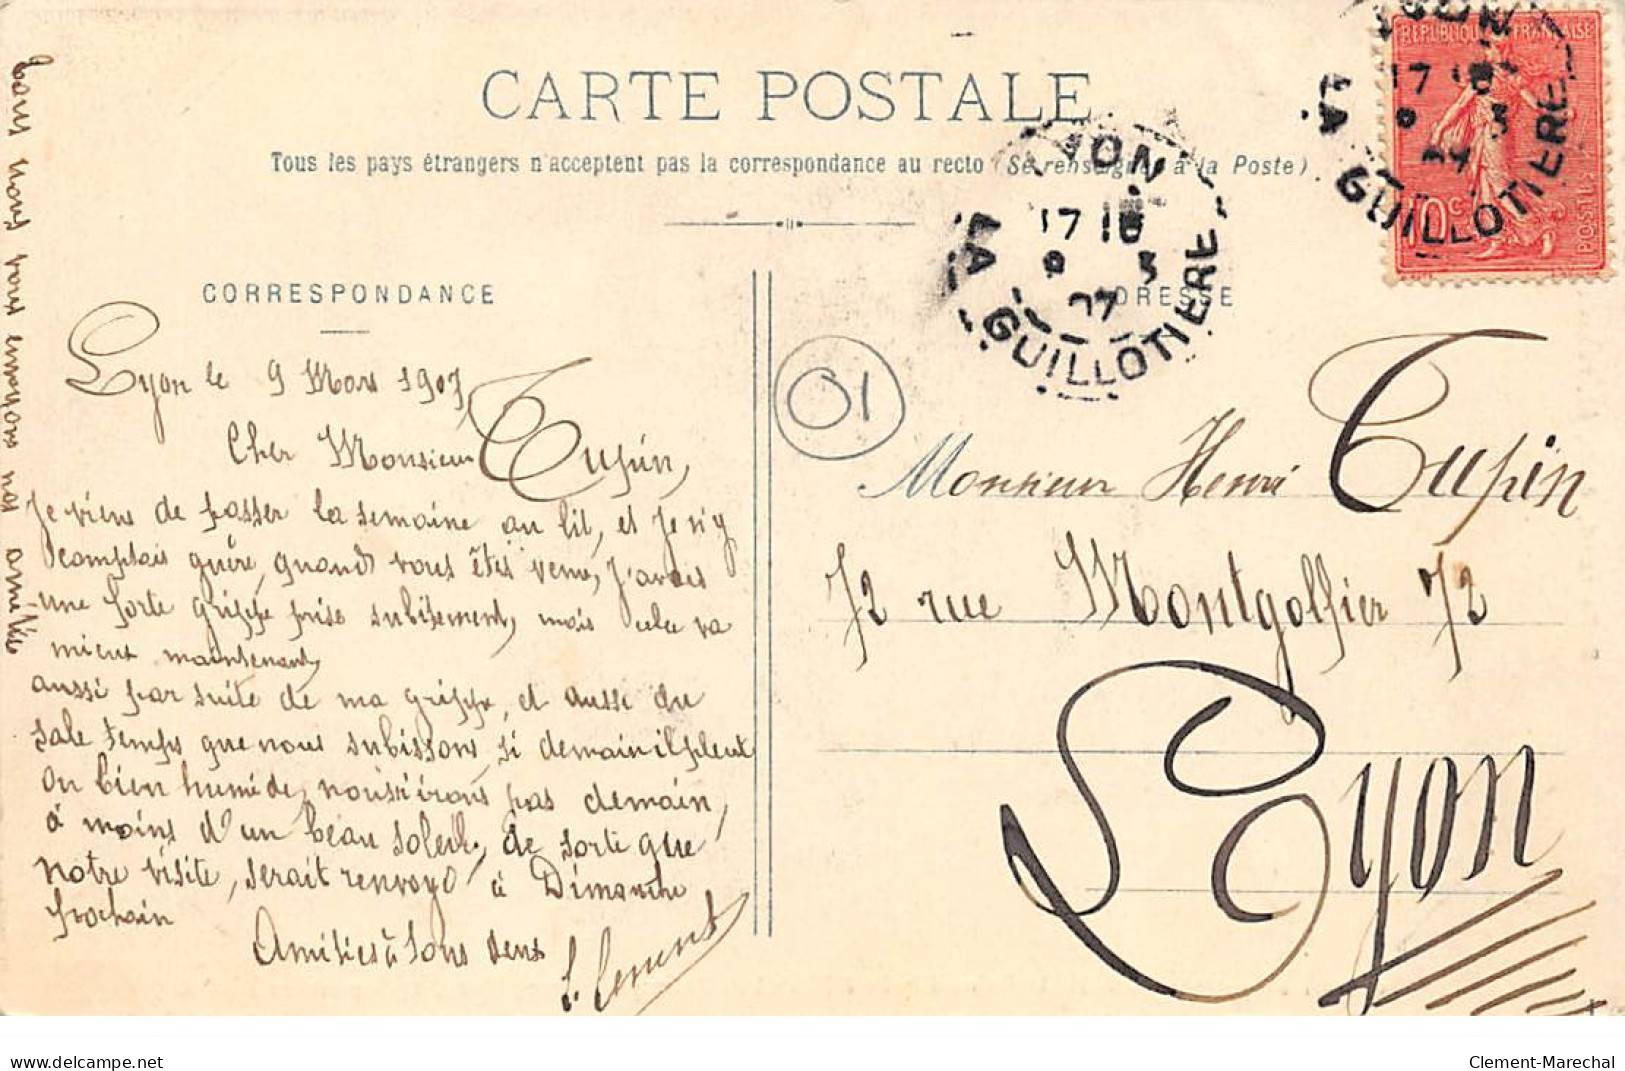 CARTE POSTALE
Tous les pays étrangers n'acceptent pas la correspondance au recto (Se renseigner à la Poste)
CORRESPONDANCE
Lyon le 9 Mars 1907
Cher Monsieur Tupin,
Je viens de passer la semaine au lit, et je n'y
comptais guère, quand vous êtes venu, j'avais
une forte grippe prise subitement, mais cela va
mieux maintenant,
aussi par suite de ma grippe, et aussi du
sale temps que nous subissons, si demain il pleut
ou bien humide, nous n'irons pas demain,
à moins d'un beau soleil, de sorte que
notre visite, serait renvoyé à Dimanche
prochain
Amitiés à tous deux
Tous nous vous envoyons nos amitiés
ADRESSE
Monsieur Henri Tupin
72 rue Montgolfier 72
Lyon
01
LYON
17 10
9 3
07
LA GUILLOTIERE
REPUBLIQUE FRANÇAISE
10c
POSTES
LYON
17
LA GUILLOTIERE
delcampe.net
Clement-Marechal